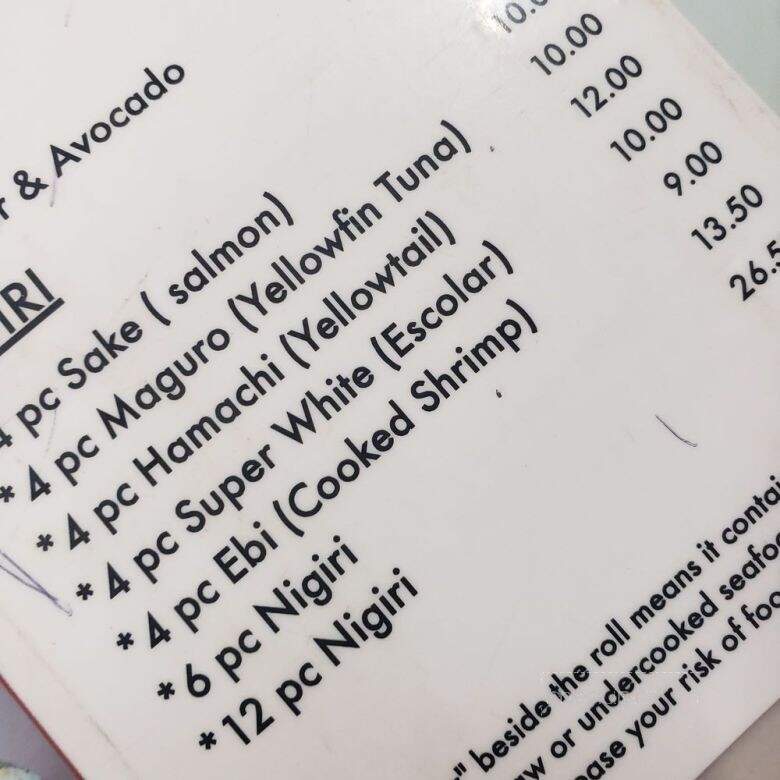 & Avocado
IRI
4 pc Sake ( salmon) 10.0
* 4 pc Maguro (Yellowfin Tuna) 10.00
* 4 pc Hamachi (Yellowtail) 12.00
* 4 pc Super White (Escolar) 10.00
* 4 pc Ebi (Cooked Shrimp) 9.00
* 6 pc Nigiri 13.50
* 12 pc Nigiri 26.5
" beside the roll means it contai
w or undercooked seafoo
ease your risk of foo